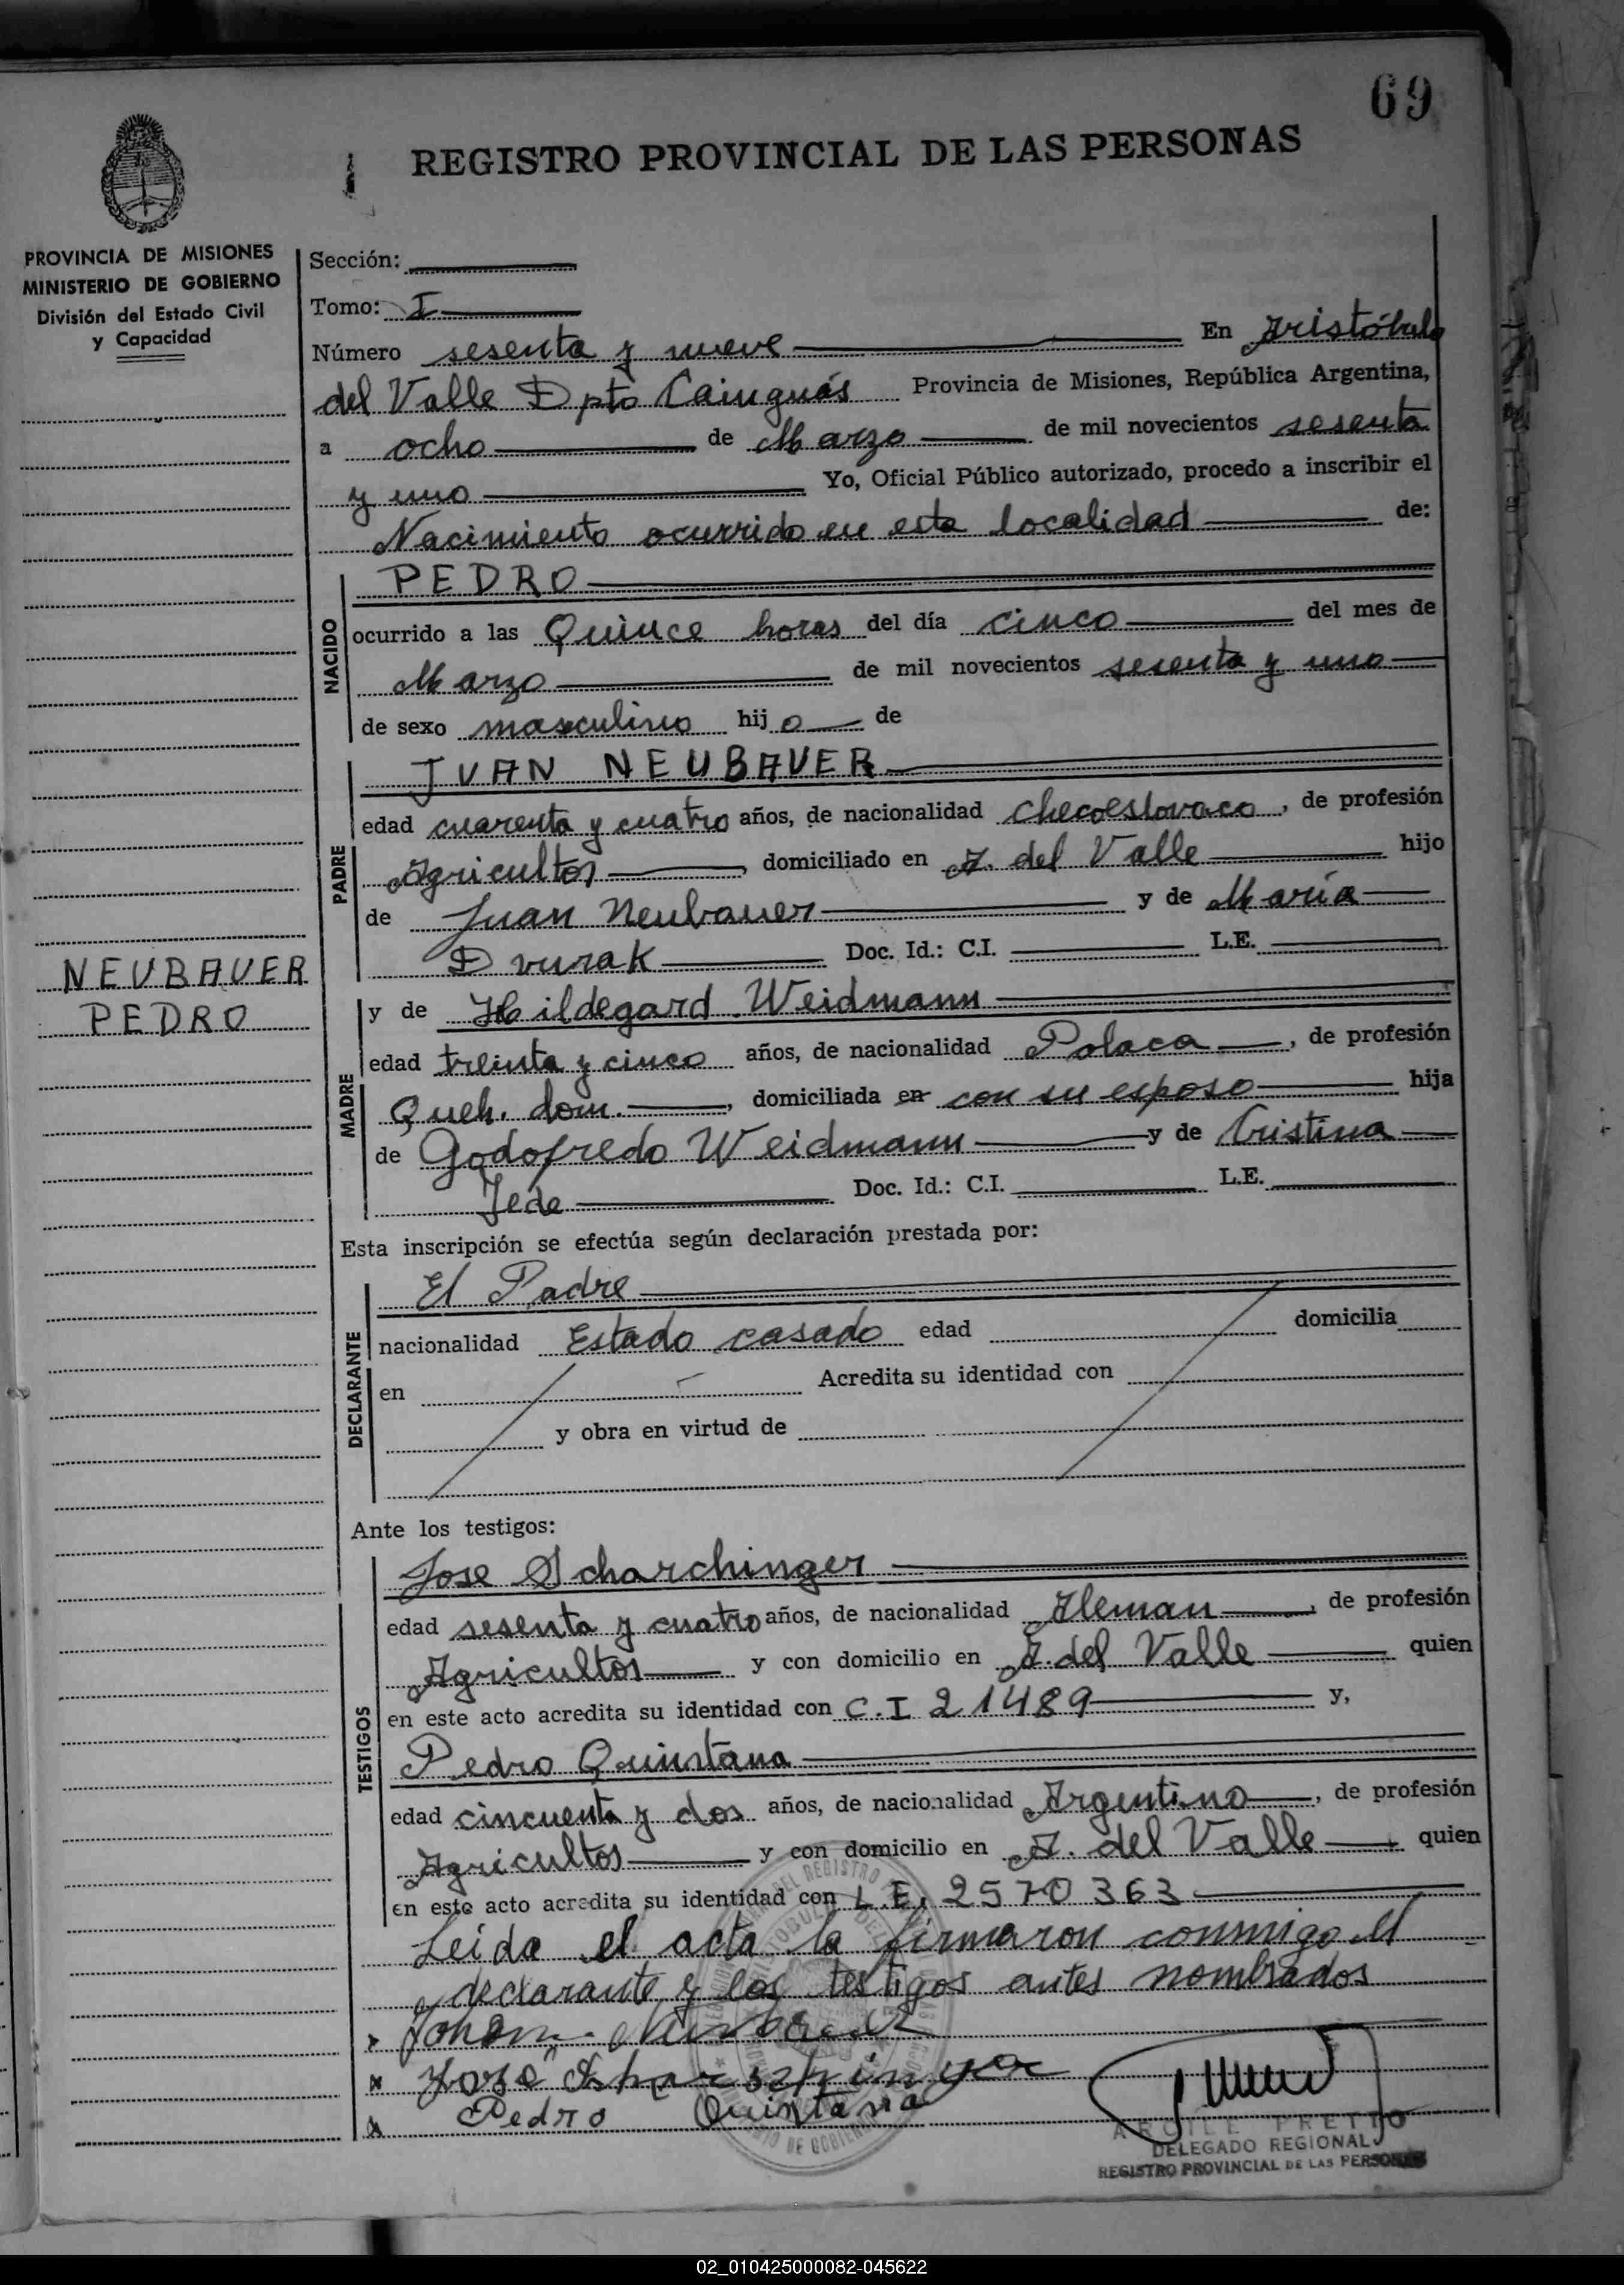 69
REGISTRO PROVINCIAL DE LAS PERSONAS
PROVINCIA DE MISIONES
MINISTERIO DE GOBIERNO
División del Estado Civil
y Capacidad
Sección:
Tomo: I
Número sesenta y nueve En Aristóbulo
del Valle Dpto Cainguás Provincia de Misiones, República Argentina,
a ocho de Marzo de mil novecientos sesenta
y uno Yo, Oficial Público autorizado, procedo a inscribir el
Nacimiento ocurrido en esta localidad de:
NACIDO
PEDRO
ocurrido a las Quince horas del día cinco del mes de
Marzo de mil novecientos sesenta y uno
de sexo masculino hijo de
PADRE
JUAN NEUBAUER
edad cuarenta y cuatro años, de nacionalidad checoeslovaco, de profesión
Agricultor, domiciliado en A. del Valle hijo
de Juan Neubauer y de María
Dvurak Doc. Id.: C.I. L.E.
NEUBAUER
PEDRO
MADRE
y de Hildegard Weidmann
edad treinta y cinco años, de nacionalidad Polaca, de profesión
Queh. dom., domiciliada en con su esposo hija
de Godofredo Weidmann y de Cristina
Jede Doc. Id.: C.I. L.E.
Esta inscripción se efectúa según declaración prestada por:
DECLARANTE
El Padre
nacionalidad Estado casado edad domicilia
en Acredita su identidad con
y obra en virtud de
Ante los testigos:
TESTIGOS
Jose Scharchinger
edad sesenta y cuatro años, de nacionalidad Aleman, de profesión
Agricultor y con domicilio en A. del Valle quien
en este acto acredita su identidad con C.I 21489 y,
Pedro Quintana
edad cincuenta y dos años, de nacionalidad Argentino, de profesión
Agricultor y con domicilio en A. del Valle quien
en este acto acredita su identidad con L.E. 2570363
Leida el acta la firmaron conmigo el
declarante y los testigos antes nombrados
Johan
Pedro Quintana
PRETTO
DELEGADO REGIONAL
REGISTRO PROVINCIAL DE LAS PERSONAS
02_010425000082-045622